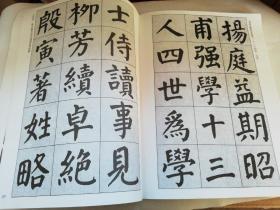 揚庭益期昭
甫强學十三
人四世爲學
士侍讀事見
柳芳續卓絕
殷寅著姓略